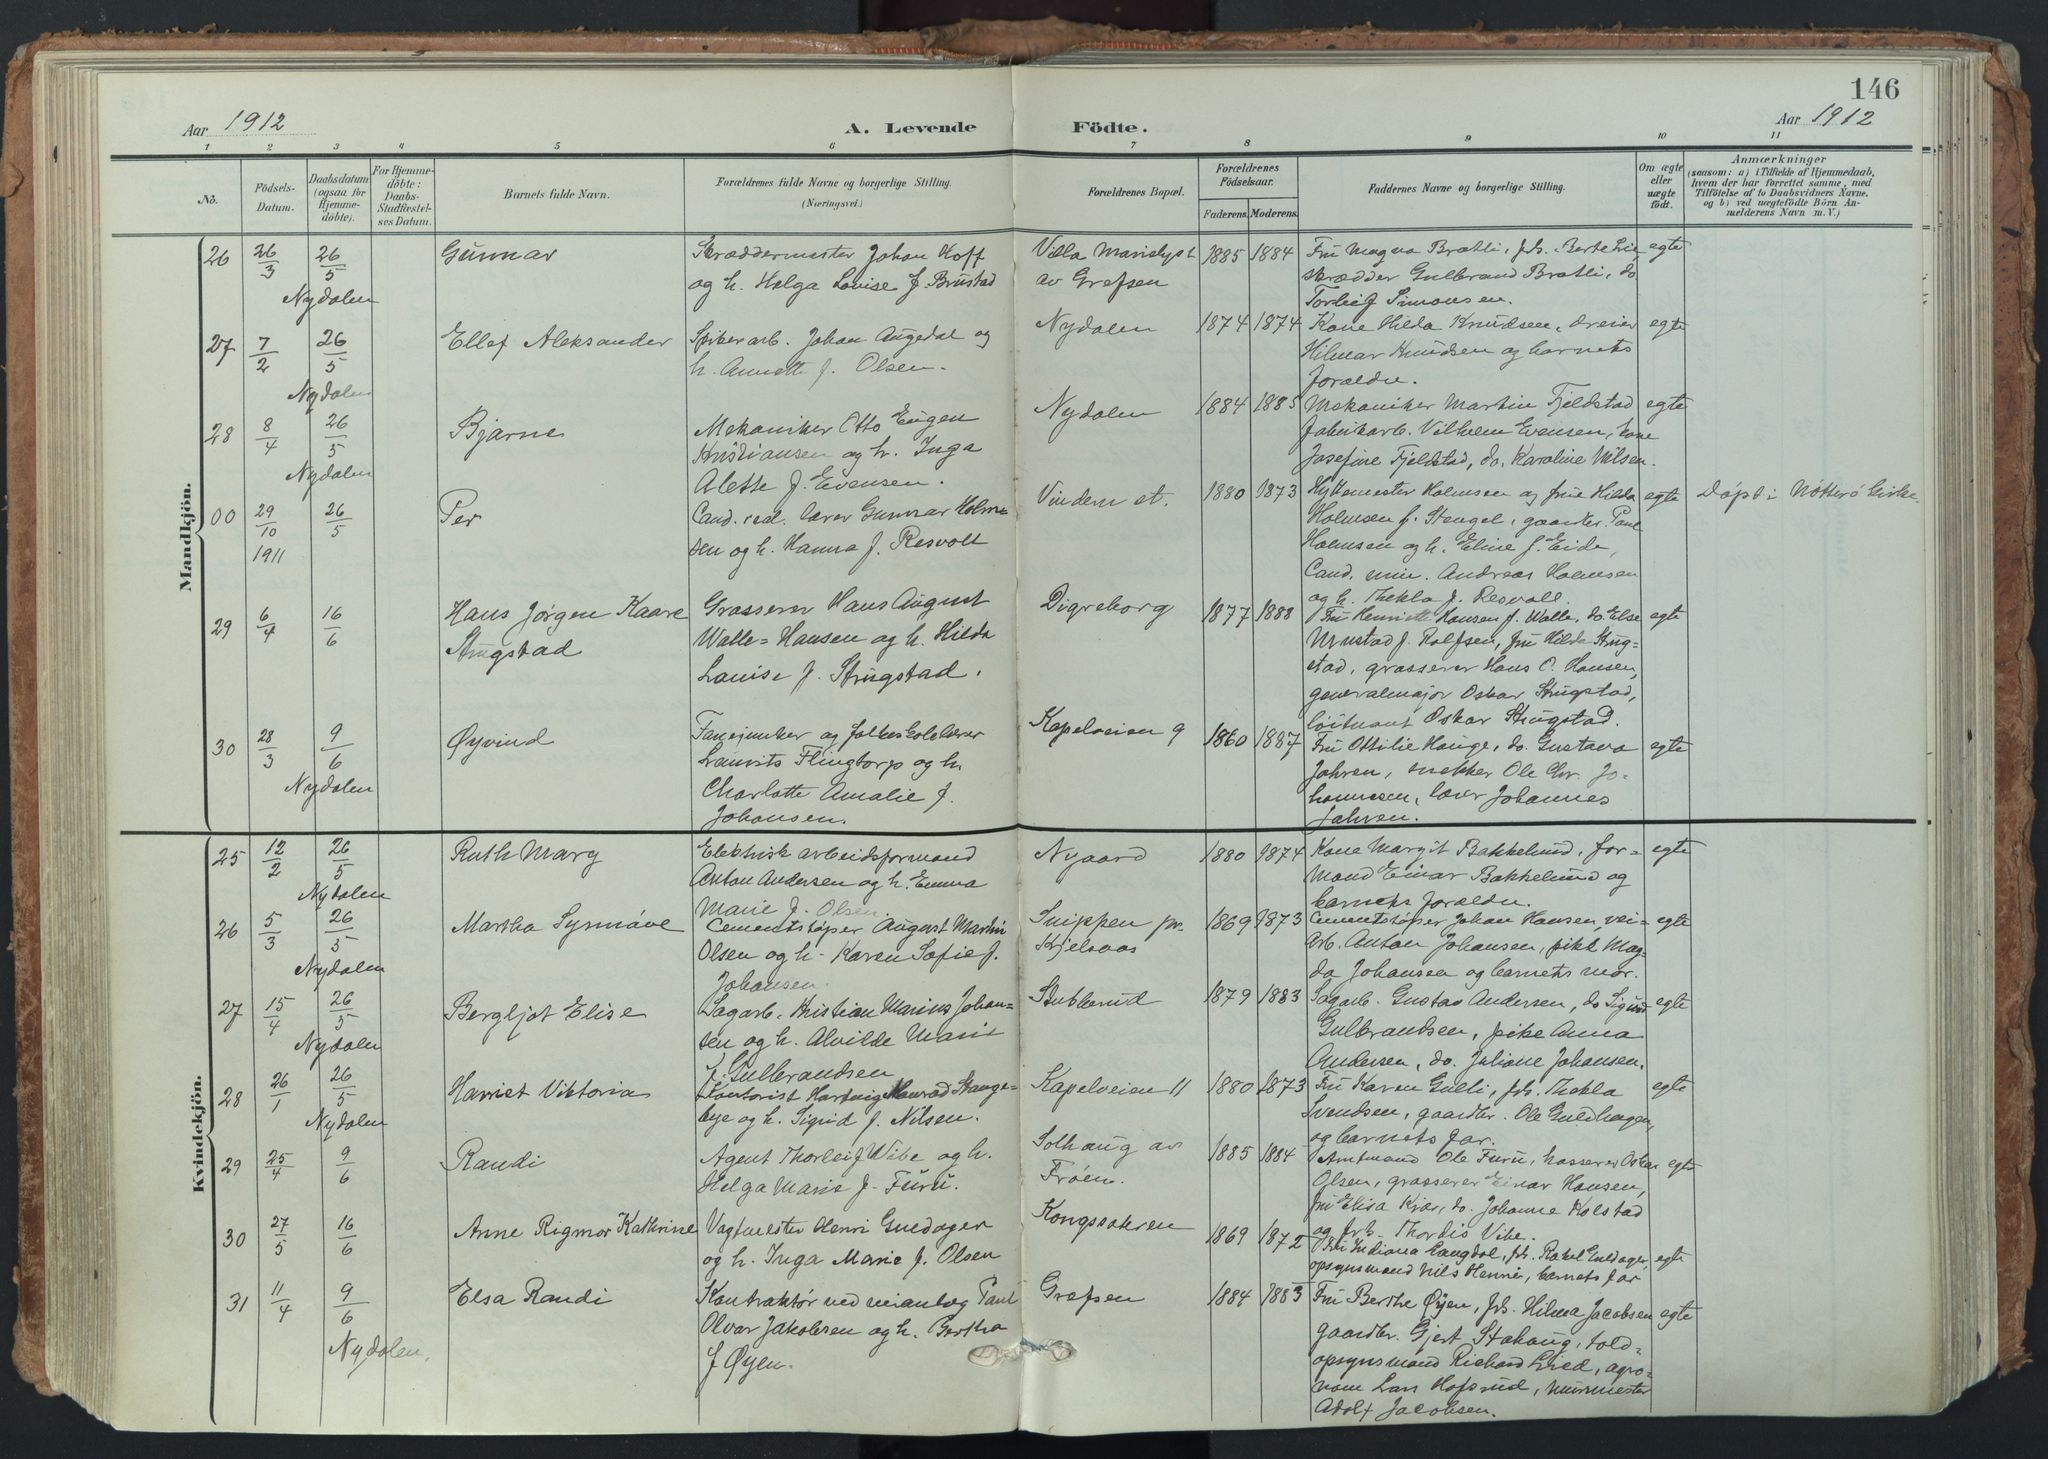 146
Aar 1912
A. Levende Födte.
Aar 1912
1 2 3 4 5 6 7 8 9 10 11
No.
Födsels-
Datum.
Daabsdatum
(ogsaa for
Hjemme-
döbte).
For Hjemme-
döbte:
Daabs-
Stadfæstel-
ses Datum.
Barnets fulde Navn.
Forældrenes fulde Navne og borgerlige Stilling.
(Næringsvei.)
Forældrenes Bopæl.
Forældrenes
Födselsaar.
Faderens. Moderens.
Faddernes Navne og borgerlige Stilling.
Om ægte
eller
uægte
födt.
Anmærkninger
(saasom: a) i Tilfælde af Hjemmedaab,
hvem der har forrettet samme, med
Tilföielse af to Daabsvidners Navne,
og b) ved uægtefödte Börn An-
melderens Navn m. V.)
Mandkjön.
26 26/3 26/5 Nydalen
Gunnar
Skræddermester Johan Hoff
og h. Helga Lovise f. Brustad
Villa Marielyst
av Grefsen
1885 1884
Fru Magna Bratli, frk. Berte Lie,
skrædder Gulbrand Bratli, do
Torleif Simonsen.
egte
27 7/2 26/5 Nydalen
Ellef Aleksander
Spikerarb. Johan Augedal og
h. Annette f. Olsen.
Nydalen
1874 1874
Kone Hilda Knudsen, dreier
Hilmar Knudsen og barnets
foraldre.
egte
28 8/4 26/5 Nydalen
Bjarne
Mekaniker Otto Eugen
Kristiansen og h. Inga
Alette f. Evensen.
Nydalen
1884 1885
Mekaniker Martin Fjeldstad
fabrikarb. Vilhelm Evensen, kone
Josefine Fjeldstad, do. Karoline Nilsen.
egte
00 29/10 1911 26/5
Per
Cand. real. lærer Gunnar Holm-
sen og h. Hanna f. Resvoll
Vindern st.
1880 1873
Hyttemester Holmsen og frue Hilda
Holmsen f. Stengel, gaardbr. Paul
Holmsen og h. Eline f. Eide,
Cand. min. Andreas Holmsen
og h. Thekla f. Resvoll.
egte
Døpt i Nötterö kirke
29 6/4 16/6
Hans Jørgen Kaare
Strugstad
Grosserer Hans August
Walle-Hansen og h. Hilda
Louise f. Strugstad.
Digreborg
1877 1888
Fru Henriette Hansen f. Walle, do. Else
Mustad f. Rolfsen, fru Hilda Strug-
stad, grosserer Hans C. Hansen,
generalmajor Oskar Strugstad,
løitnant Oskar Strugstad.
egte
30 28/3 9/6 Nydalen
Øyvind
Fanejunker og folkeskolelærer
Laurits Flingtorp og h.
Charlotte Amalie f.
Johansen.
Kapelveien 9
1860 1887
Fru Ottilie Hauge, do. Gustava
Jahren, snekker Ole Chr. Jo-
hannesen, lærer Johannes
Jahren.
egte
Kvindekjön.
25 12/2 26/5 Nydalen
Ruth Marg
Elektrisk arbeidsformand
Anton Andersen og h. Emma
Marie f. Olsen.
Nygaard
1880 1874
Kone Margit Bakkelund, for-
mand Einar Bakkelund og
barnets foraldre.
egte
26 5/3 26/5 Nydalen
Martha Synnöve
Cementstøper August Martin
Olsen og h. Karen Sofie f.
Johansen.
Snippen pr.
Kjelsaas
1869 1873
Cementstøper Johan Hansen, vei-
arb. Anton Johansen, pike Mag-
da Johansen og barnets mor.
egte
27 15/4 26/5 Nydalen
Bergljot Elise
Sagarb. Kristian Marius Johan-
sen og h. Alvilde Marie
f. Gulbrandsen
Stubberud
1879 1883
Sagarb. Gustav Andersen, do Sigurd
Gulbrandsen, pike Anna
Andersen, do. Juliane Johansen.
egte
28 26/1 26/5 Nydalen
Harriet Viktoria
Kontorist Hartvig Konrad Stange-
bye og h. Sigrid f. Nilsen.
Kapelveien 11
1880 1873
Fru Karen Gulli, frk. Thekla
Svendsen, gaardbr. Ole Guldhagen,
og barnets far.
egte
29 25/4 9/6
Randi
Agent Thorleif Wibe og h.
Helga Marie f. Furu.
Solhaug av
Frøen.
1885 1884
Amtmand Ole Furu, kasserer Oskar
Olsen, grosserer Einar Hansen,
fru Elisa Kiær, do. Johanne Kolstad
og frk. Thordis Vibe.
egte
30 27/5 16/6
Anne Rigmor Kathrine
Vagtmester Henri Guldager
og h. Inga Marie f. Olsen
Kongssæteren
1869 1872
Fru Indiana Langdal, frk. Rakel Guldager,
opsynsmand Nils Henrie, barnets far
egte
31 11/4 9/6 Nydalen.
Elsa Randi
Kontraktør ved veianlæg Paul
Olvar Jakobsen og h. Bertha
f Øyen.
Grefsen
1884 1883
Fru Berthe Øyen, frk. Hilma Jacobsen
gaardbr. Gjert Stahaug, told-
opsynsmand Richard Lied, agro-
nom Lars Hofsrud, murmester
Adolf Jacobsen.
egte